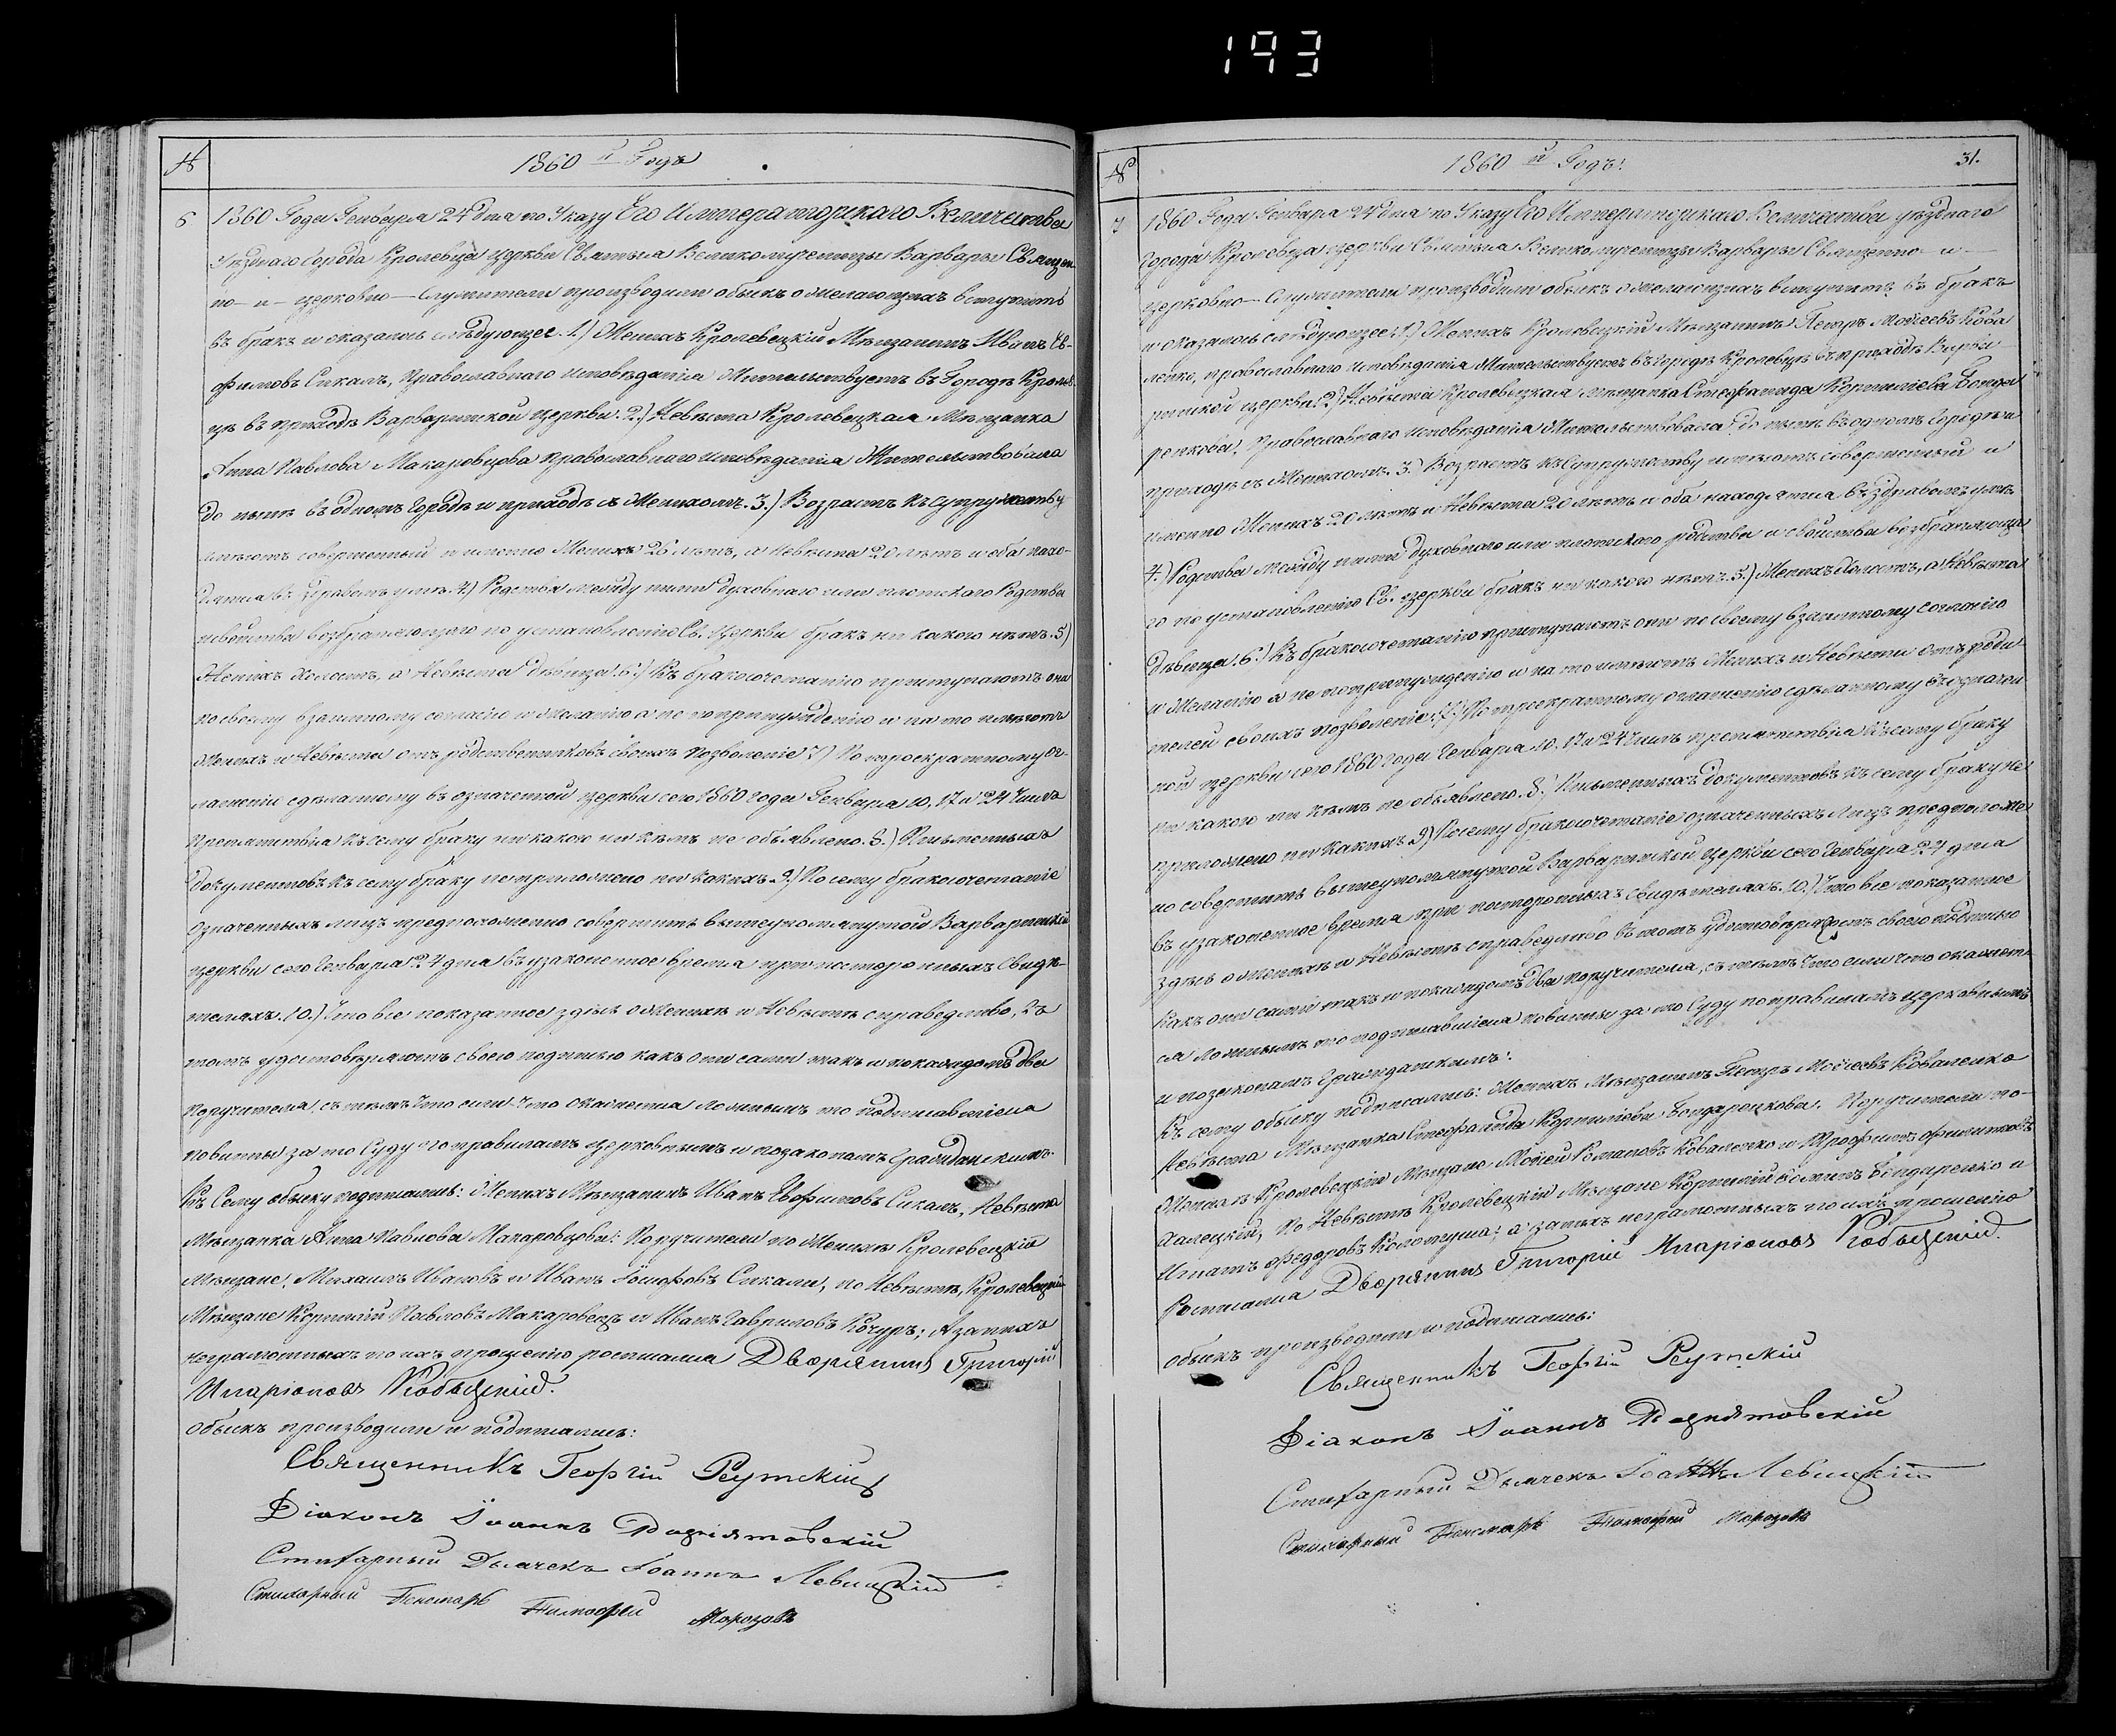 193
№ 1860й Годъ
6 1860 Года Генваря 24 дня по Указу Его Императорскаго Величества
Уѣзднаго города Кролевца церкви Святыя Великомученицы Варвары Священ-
но- и- церковно-служители производили обыскъ о желающихъ вступить
въ бракъ и оказалось слѣдующее. 1.) Женихъ Кролевецкій Мѣщанинъ Иванъ Ев-
фимовъ Сикалъ, православнаго исповѣданія Жительствуетъ въ Городѣ Кролев-
цѣ въ приходѣ Варваринской церкви. 2.) Невѣста Кролевецкая Мѣщанка
Анна Павлова Макаровцова православнаго исповѣданія Жительствовала
до нынѣ въ одномъ городѣ и приходѣ съ Женихомъ. 3.) Возрастъ къ супружеству
имѣютъ совершенный и именно Женихъ 26 лѣтъ, а Невѣста 20 лѣтъ и оба нахо-
дятся въ здравомъ умѣ. 4.) Родства между ними духовнаго или плотскаго Родства
и свойства возбраняющаго по установленію Св. Церкви бракъ ни какого нѣтъ. 5.)
Женихъ Холостъ, а Невѣста дѣвица. 6.) Къ бракосочетанію приступаютъ они
по своему взаимному согласію и желанію а не по принужденію и на то имѣютъ
Женихъ и Невѣста отъ родственниковъ своихъ позволеніе 7.) По троекратному ог-
лашенію сдѣланному въ означенной церкви сего 1860 года Генваря 10, 17 и 24 Чиселъ
Препятствія къ сему браку ни какого ни кѣмъ не объявлено. 8.) Письменныхъ
документовъ къ сему браку не приложено ни какихъ. 9.) По сему бракосочетаніе
означенныхъ лицъ предположено совершить въ вышеупомянутой Варваринской
церкви сего Генваря 24 дня въ узаконенное время при постороннихъ Свидѣ-
теляхъ. 10.) Что все показанное здѣсь о Женихѣ и Невѣстѣ справедливо, въ
томъ удостовѣряютъ своею подписью какъ они сами такъ и по каждомъ два
поручителя, съ тѣмъ что если что окажется ложнымъ то подписавшіеся
повинны за то Суду по правиламъ церковнымъ и по законамъ Гражданскимъ.
Къ Сему обыску подписались: Женихъ Мѣщанинъ Иванъ Евфимовъ Сикалъ, Невѣста
Мѣщанка Анна Павлова Макаровцова: Поручители по Женихѣ Кролевецкіе
Мѣщане: Михаилъ Ивановъ и Иванъ Іосифовъ Сикали, по Невѣстѣ, Кролевецкіе
Мѣщане Корнилій Павловъ Макаровецъ и Иванъ Гавриловъ Кочуръ; А за нихъ
неграмотныхъ по ихъ прошенію росписался Дворянинъ Григорій
Иларіоновъ Кобызскій.
обыскъ производили и подписались:
Священникъ Георгій Реутскій
Діаконъ Іоаннъ Рознятовскій
Стихарный Дьячекъ Іоаннъ Левицкій
Стихарный Пономарь Тимофей Морозовъ
№ 1860й Годъ: 31.
7 1860 Года Генваря 24 дня по Указу Его Императорскаго Величества уѣзднаго
города Кролевца церкви Святыя Великомученицы Варвары Священно- и-
церковно-служители производили обыскъ о желающихъ вступить въ бракъ
и оказалось слѣдующее: 1.) Женихъ Кролевецкій Мѣщанинъ Петръ Моѵсеевъ Кова-
ленко, православнаго исповѣданія Жительствуетъ въ городѣ Кролевцѣ въ приходѣ Варва-
ринской церкви. 2.) Невѣста Кролевецкая мѣщанка Стефанида Корнилiева Бонда-
ренкова, Православнаго исповѣданія Жительствовала до нынѣ въ одномъ городѣ и
приходѣ съ Женихомъ. 3.) Возрастъ къ супружеству имѣютъ совершенный и
именно Женихъ 20 лѣтъ и Невѣста 20 лѣтъ и оба находятся въ здравомъ умѣ
4.) Родства между ними духовнаго или плотскаго родства и свойства возбраняюща-
го по установленію Св. церкви бракъ ни какого нѣтъ. 5.) Женихъ Холостъ, а Невѣста
дѣвица. 6.) Къ бракосочетанію приступаютъ они по своему взаимному согласію
и желанію а не по принужденію и на то имѣютъ Женихъ и Невѣста отъ роди-
телей своихъ позволеніе. 7.) По троекратному оглашенію сдѣланному въ означен-
ной церкви сего 1860 года Генваря 10, 17 и 24 Чиселъ препятствія къ сему браку
ни какого ни кѣмъ не объявлено. 8.) Письменныхъ документовъ къ сему браку не
приложено ни какихъ 9.) Посему бракосочетаніе означенныхъ лицъ предположе-
но совершить въ вышеупомянутой Варваринской церкви сего Генваря 24 дня
въ узаконенное время при постороннихъ свидѣтеляхъ. 10.) Что все показанное
здѣсь о Женихѣ и Невѣстѣ справедливо въ томъ удостовѣряютъ своею подписью
какъ они сами такъ и по каждомъ два поручителя, съ тѣмъ что если что окажет-
ся ложнымъ то подписавшіеся повинны за то Суду по правиламъ церковнымъ
и по законамъ Гражданскимъ:
Къ сему обыску подписались: Женихъ Мѣщанинъ Петръ Моѵсеевъ Коваленко
Невѣста Мѣщанка Стефанида Корнилiева Бондаренкова. Поручители по-
Женихѣ Кролевецкіе Мѣщане Моѵсей Романовъ Коваленко и Трофимъ Филиповъ
Халецкій, по Невѣстѣ Кролевецкіе Мѣщане Корнилій Бондаренко и
Игнатъ Федоровъ Колотуша; а за нихъ неграмотныхъ по ихъ прошенію
Росписался Дворянинъ Григорій Иларіоновъ Кобызскій.
обыскъ производили и подписались:
Священникъ Георгій Реутскій
Діаконъ Іоаннъ Рознятовскій
Стихарный Дьячекъ Іоаннъ Левицкій
Стихарный Пономарь Тимофей Морозовъ